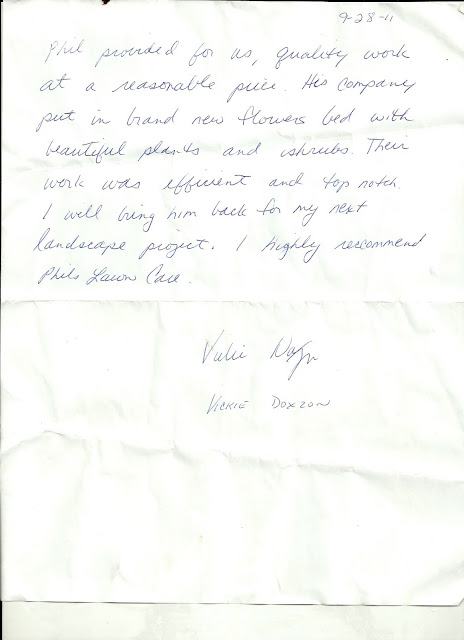 9-28-11
Phil provided for us, quality work
at a reasonable price. His company
put in brand new flowers bed with
beautiful plants and shrubs. Their
work was efficient and top notch.
I will bring him back for my next
landscape project. I highly recommend
Phils Lawn Care.
Vickie
VICKIE DOXZON